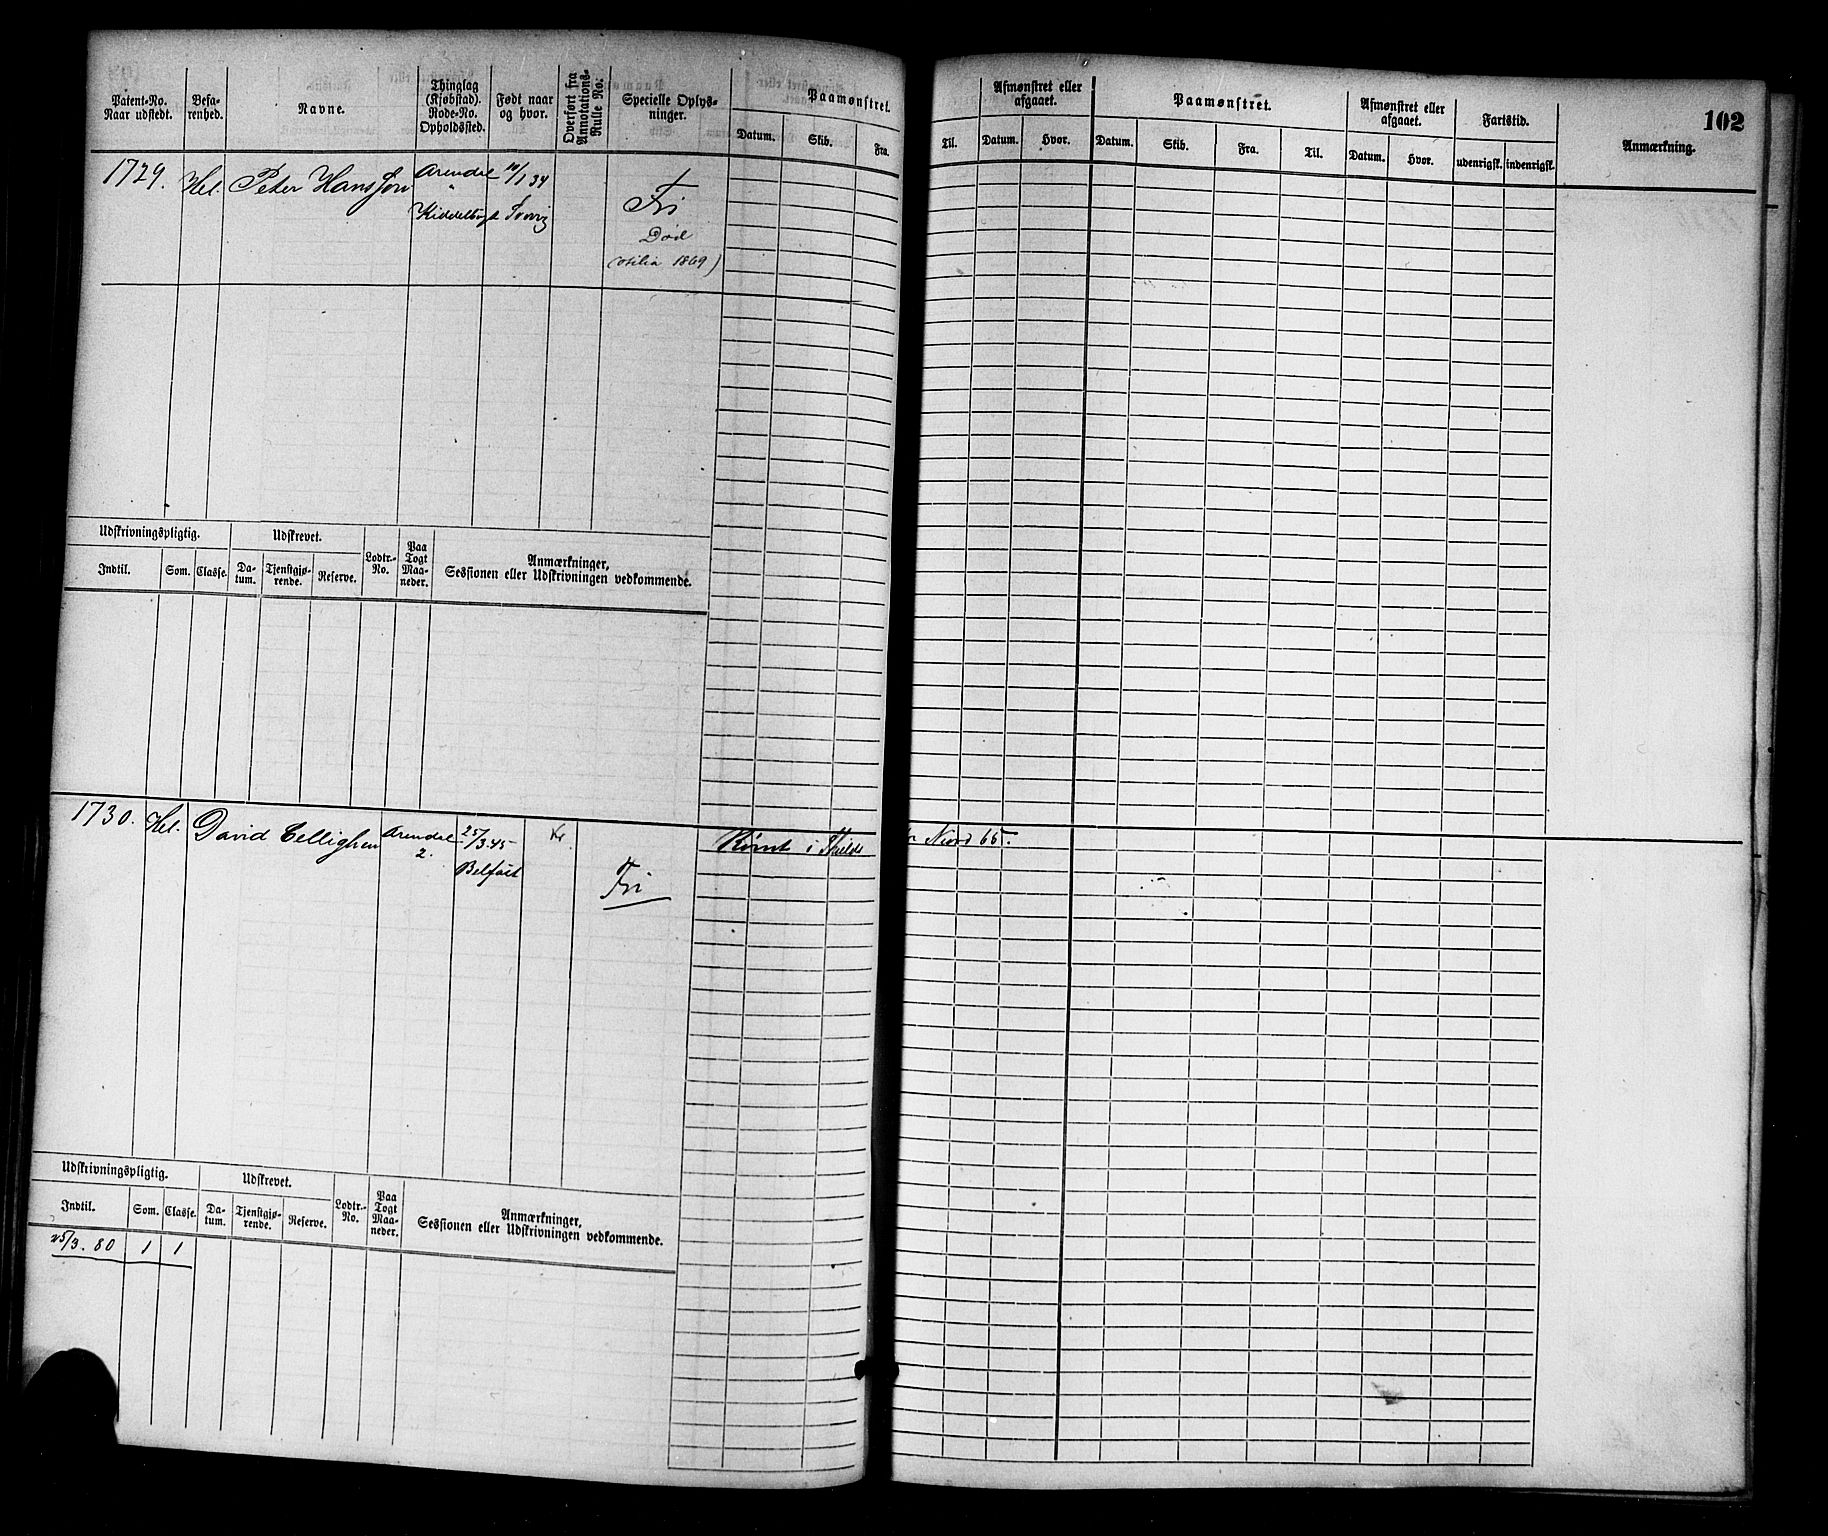 102
Patent-No.
Naar udstedt.
Befa-
renhed.
Navne.
Thinglag
(Kjøbstad).
Rode-No.
Opholdssted.
Født naar
og hvor.
Overført fra
Annotations-
Rulle No.
Specielle Oplys-
ninger.
Paamønstret.
Datum.
Skib.
Fra.
Til.
Afmønstret eller
afgaaet.
Datum.
Hvor.
Paamønstret.
Datum.
Skib.
Fra.
Til.
Afmønstret eller
afgaaet.
Datum.
Hvor.
Fartstid.
udenrigsk.
indenrigsk.
Anmærkning.
1729.
Hel
Peter Hansson
Arendal
"
10/1 34
Fri
Død
1869)
Udskrivningspligtig.
Udskrevet.
Lodtr.-
No.
Paa
Togt
Maa-
neder.
Anmærkninger,
Sessionen eller Udskrivningen vedkommende.
Indtil.
Som.
Classe.
Da-
tum.
Tjenstgjø-
rende.
Reserve.
1730.
Hel.
David Cellighen
Arendal
2.
25/3 45
Belfast
Fri
Rømt i
Nord 65.
Udskrivningspligtig.
Udskrevet.
Lodtr.-
No.
Paa
Togt
Maa-
neder.
Anmærkninger,
Sessionen eller Udskrivningen vedkommende.
Indtil.
Som.
Classe.
Da-
tum.
Tjenstgjø-
rende.
Reserve.
25/3. 80 1 1